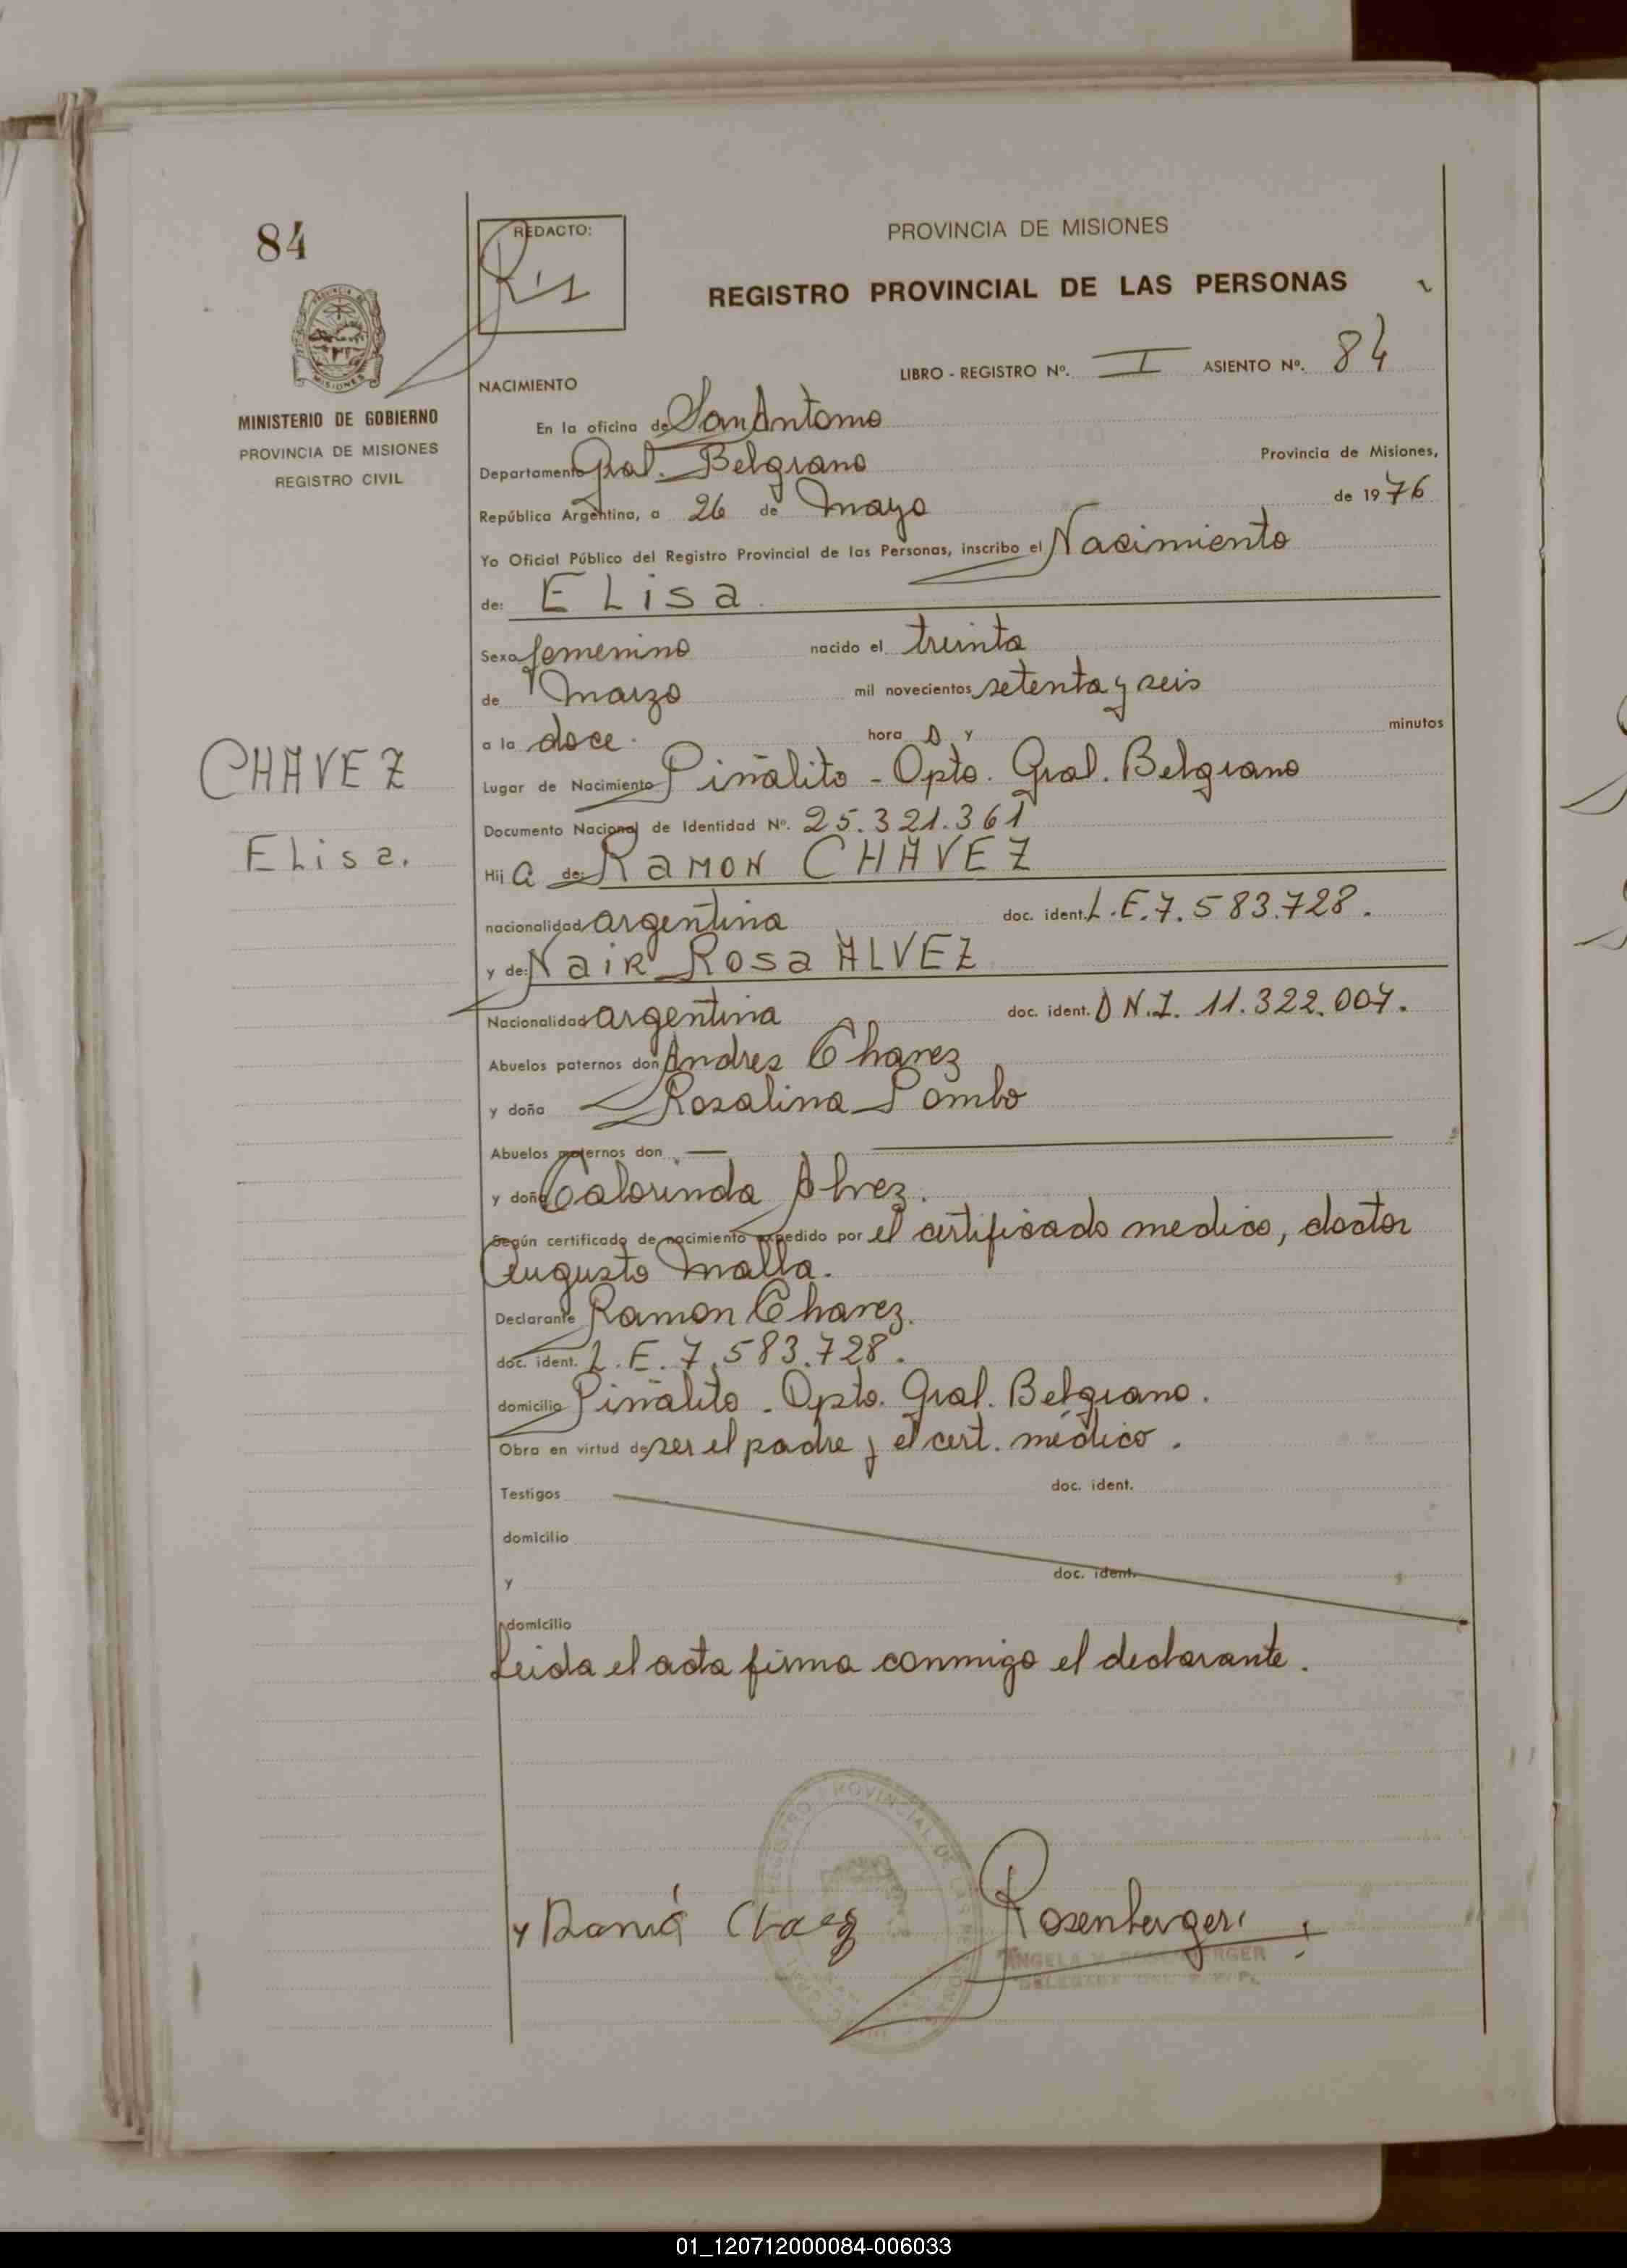 84
REDACTO:
PROVINCIA DE MISIONES
REGISTRO PROVINCIAL DE LAS PERSONAS
PROVINCIA DE
MISIONES
LIBRO - REGISTRO Nº. I ASIENTO Nº. 84
NACIMIENTO
MINISTERIO DE GOBIERNO
PROVINCIA DE MISIONES
REGISTRO CIVIL
En la oficina de San Antonio
Departamento Gral. Belgrano Provincia de Misiones,
República Argentina, a 26 de Mayo de 1976
Yo Oficial Público del Registro Provincial de las Personas, inscribo el Nacimiento
de: ELisa
Sexo femenino nacido el treinta
de Marzo mil novecientos setenta y seis
a la doce. hora s y minutos
CHAVEZ
ELisa.
Lugar de Nacimiento Piñalito - Dpto. Gral. Belgrano
Documento Nacional de Identidad Nº. 25.321.361
Hij a de: RaMON CHAVEZ
nacionalidad argentina doc. ident. L.E. 7.583.728.
y de: NaiR Rosa ALVEZ
Nacionalidad argentina doc. ident. D N.I. 11.322.007.
Abuelos paternos don Andres Chavez
y doña Rosalina Pombo
Abuelos maternos don —
y doña Calorinda Alvez.
Según certificado de nacimiento expedido por el certificado medico, doctor
Augusto Malla.
Declarante Ramon Chavez.
doc. ident. L.E. 7.583.728.
domicilio Piñalito - Dpto. Gral. Belgrano.
Obra en virtud de ser el padre y el cert. médico.
Testigos doc. ident.
domicilio
y doc. ident.
domicilio
Leida el acta firma conmigo el declarante.
REGISTRO PROVINCIAL DE LAS PERSONAS
Rosenberger
ANGELA ROSENBERGER
01_120712000084-006033